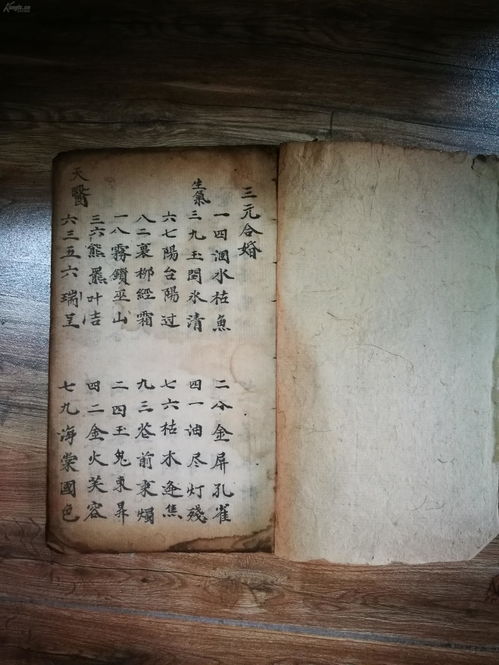 三元合婚
一四涸水枯魚
二八金屏孔雀
生氣
三九玉閏氷清
四一油尽灯殘
六七陽台陽过
七六枯木逢焦
八二柳經霜
九三前燭
一八霧鎖巫山
二四玉兔東昇
三六熊羆叶吉
四二金火芙容
天醫
六三五六瑞呈
七九海棠國色